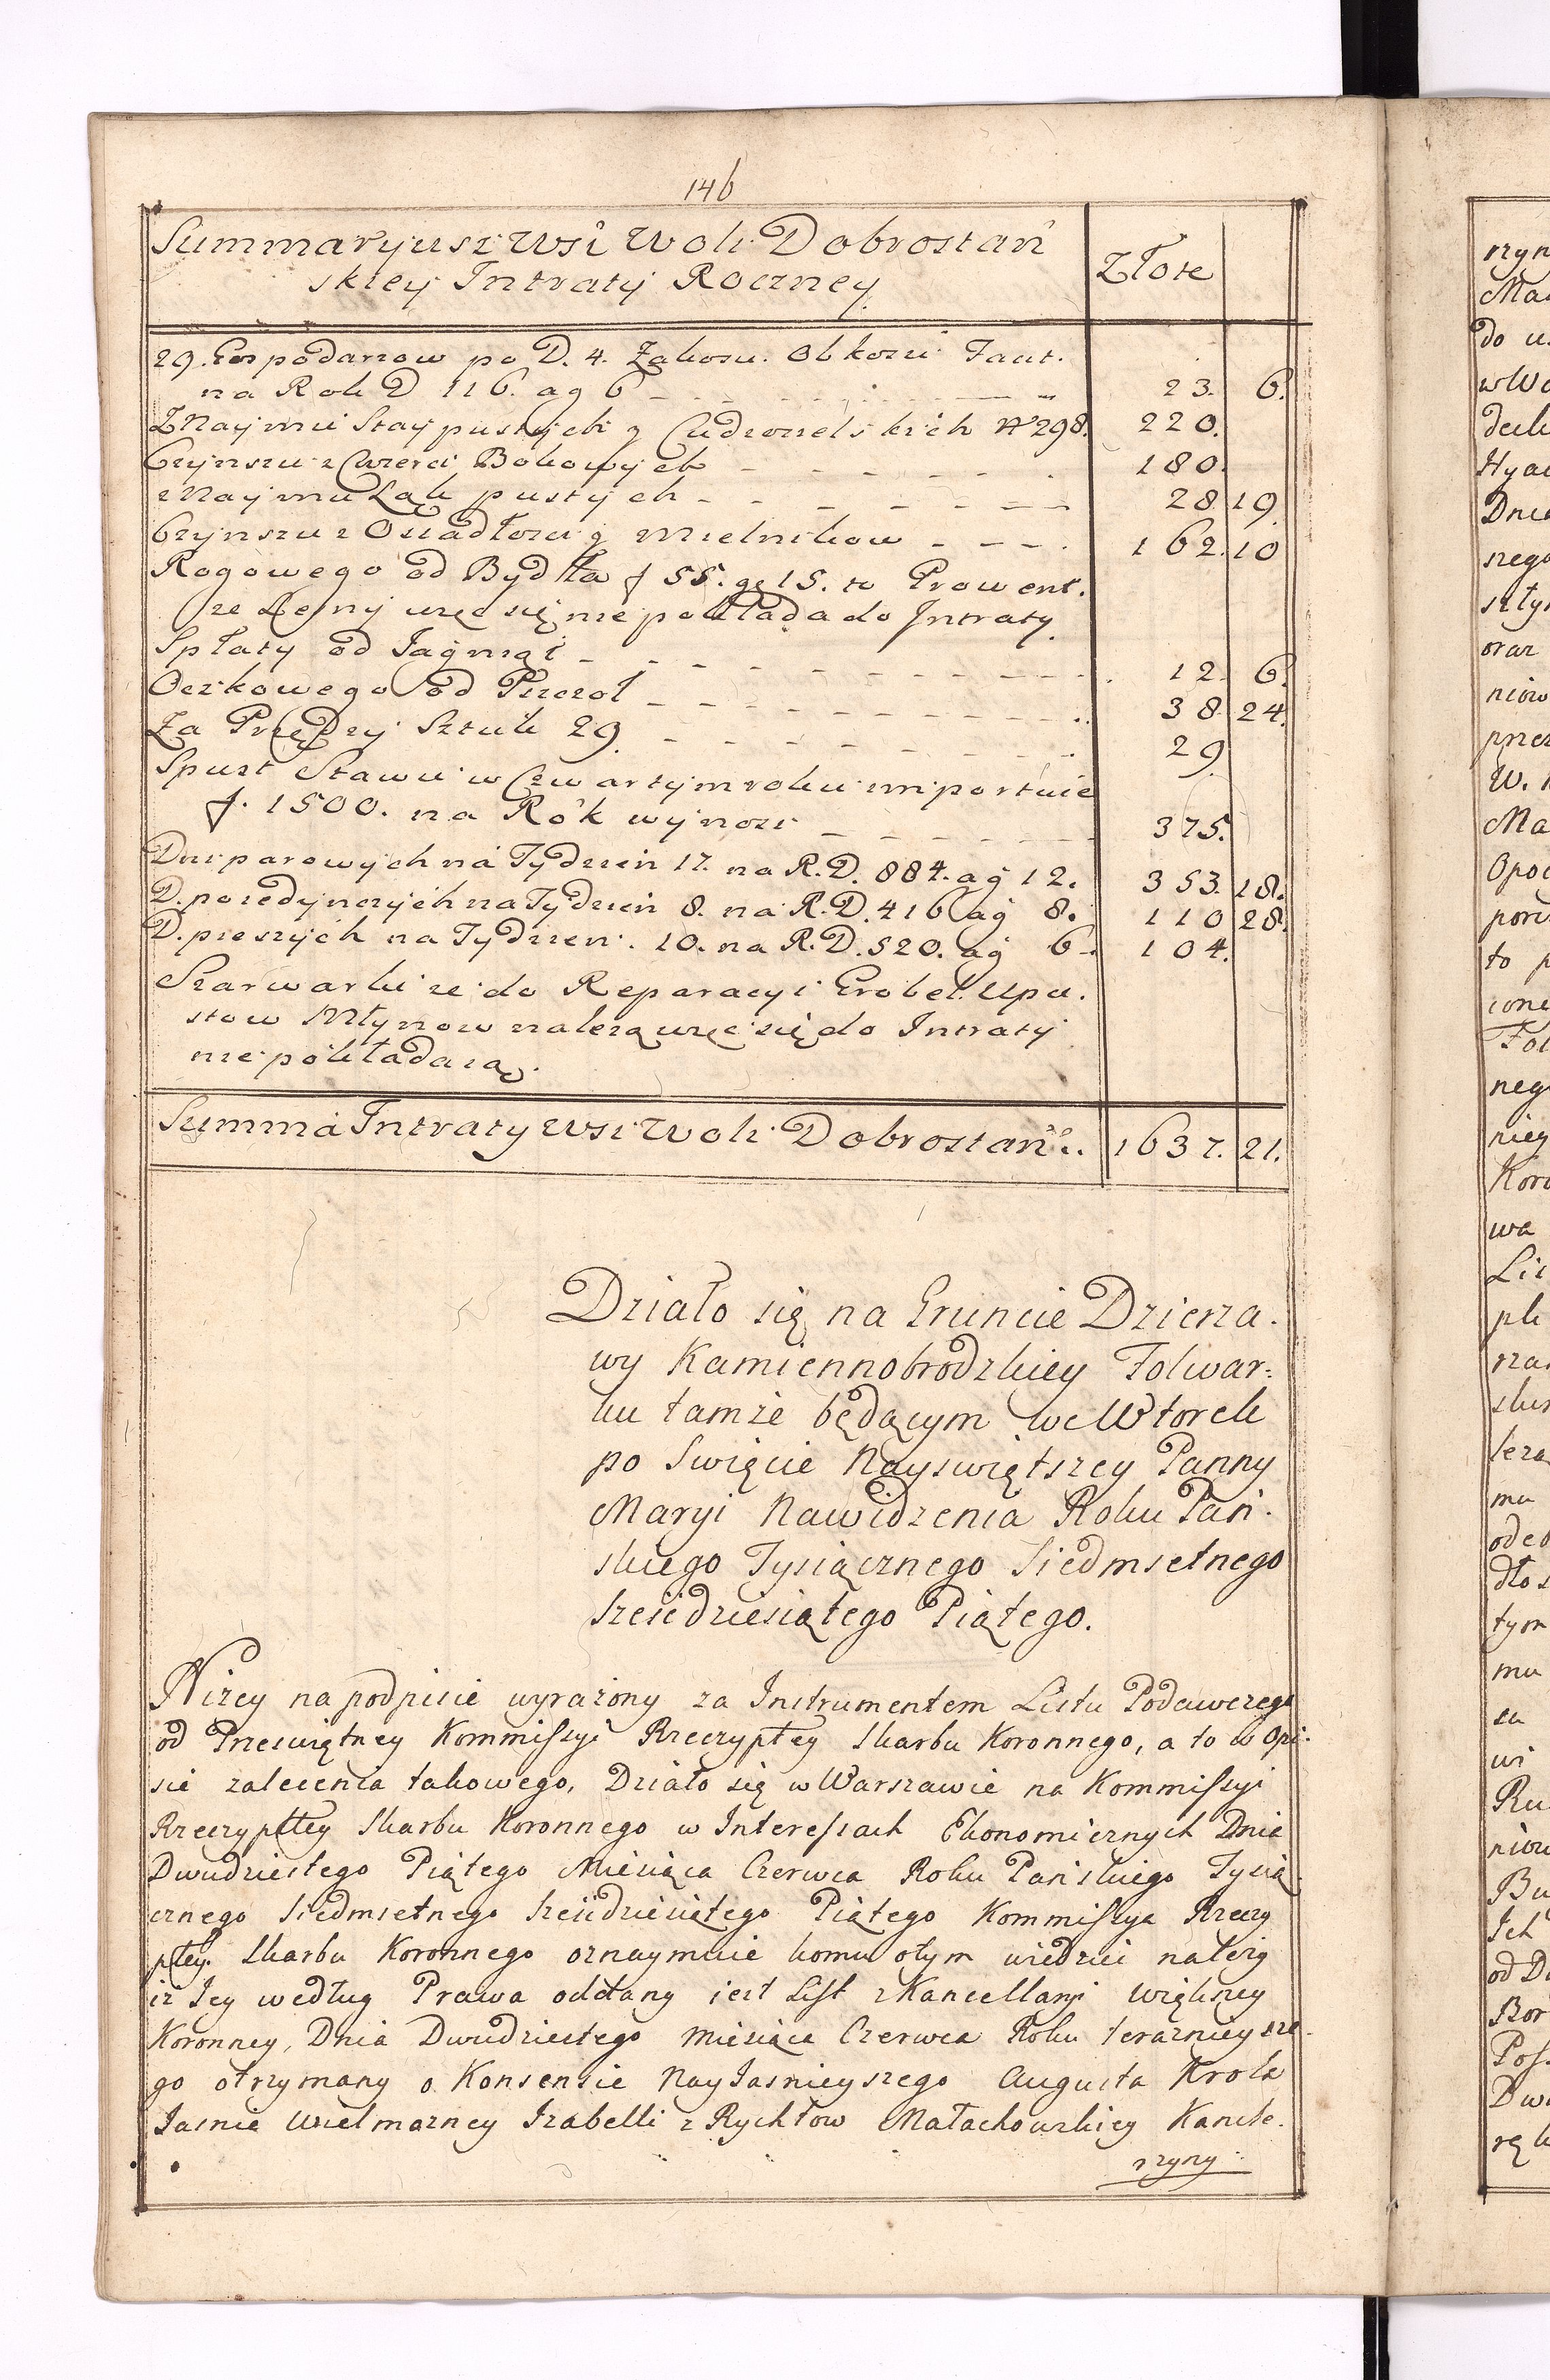 146
Summaryusz Wsi Woli Dobrostań
skiey Intraty Roczney. Złote
29. Gospodarzow po D. 4. Zakosu. Obkosu Faut.
na Rok D 116. ag 6 23. 6.
Z Naymu Stay pustych y Cudzosielskich N 298. 220.
Czynszu z Czwerci Bokowych 180.
z Naymu Łąk pustych 28 19.
Czynszu z Osiadłości y Mielnikow 162. 10
Rogowego od Bydła f 55. gr 15. to Prowent.
ze Leśny więc się nie pokłada do Intraty.
Spłaty od Jagniąt 12. 6.
Oczkowego od Pszczoł 38. 24.
Za Przędzy Sztuk 29. 29.
Spust Stawu w Czwartym roku importuie
f. 1500. na Rok wynosi 375.
Dni parowych na Tydzień 17. na R. D. 884. ag 12. 353. 18.
D. poiedynczych na Tydzień 8. na R. D. 416 ag 8. 110 28.
D. pieszych na Tydzień. 10. na R. D. 520. ag 6. 104.
Szarwarki ze do Reparacyi Grobel. Upu.
stow Młynow należą więc się do Intraty
nie pokładaią.
Summa Intraty Wsi Woli Dobrostań. 1637. 21.
Działo się na Gruncie Dzierża.
wy Kamiennobrodzkiey Folwar:
ku tamże będącym we Wtorek
po Swięcie Nayswiętszey Panny
Maryi Nawidzenia Roku Pań.
skiego Tysiącznego Siedmsetnego
Sześćdziesiątego Piątego.
Niżey na podpisie wyrażony za Instrumentem Listu Podawczego
od Przeswiętney Kommissyi Rzeczypltey Skarbu Koronnego, a to w Opi.
sie zalecenia takowego, Działo się w Warszawie na Kommissyi
Rzeczypltey Skarbu Koronnego w Interessach Ekonomicznych Dnia
Dwudziestego Piątego Miesiąca Czerwca Roku Pańskiego Tysią
cznego Siedmsetnego Sześćdziesiątego Piątego Kommissya Rzeczy
pltey. Skarbu Koronnego oznaymuie komu otym wiedzieć należy
iż Jey według Prawa oddany iest List z Kancellaryi Większey
Koronney, Dnia Dwudziestego Miesiąca Czerwca Roku teraznieysze.
go otrzymany o Konsensie Nayiasnieyszego Augusta Krola
Jasnie Wielmożney Izabelli z Rychłow Małachowskiey Kancle.
rzyny